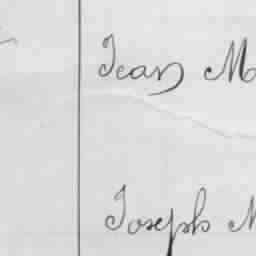 Jean M
Joseph M